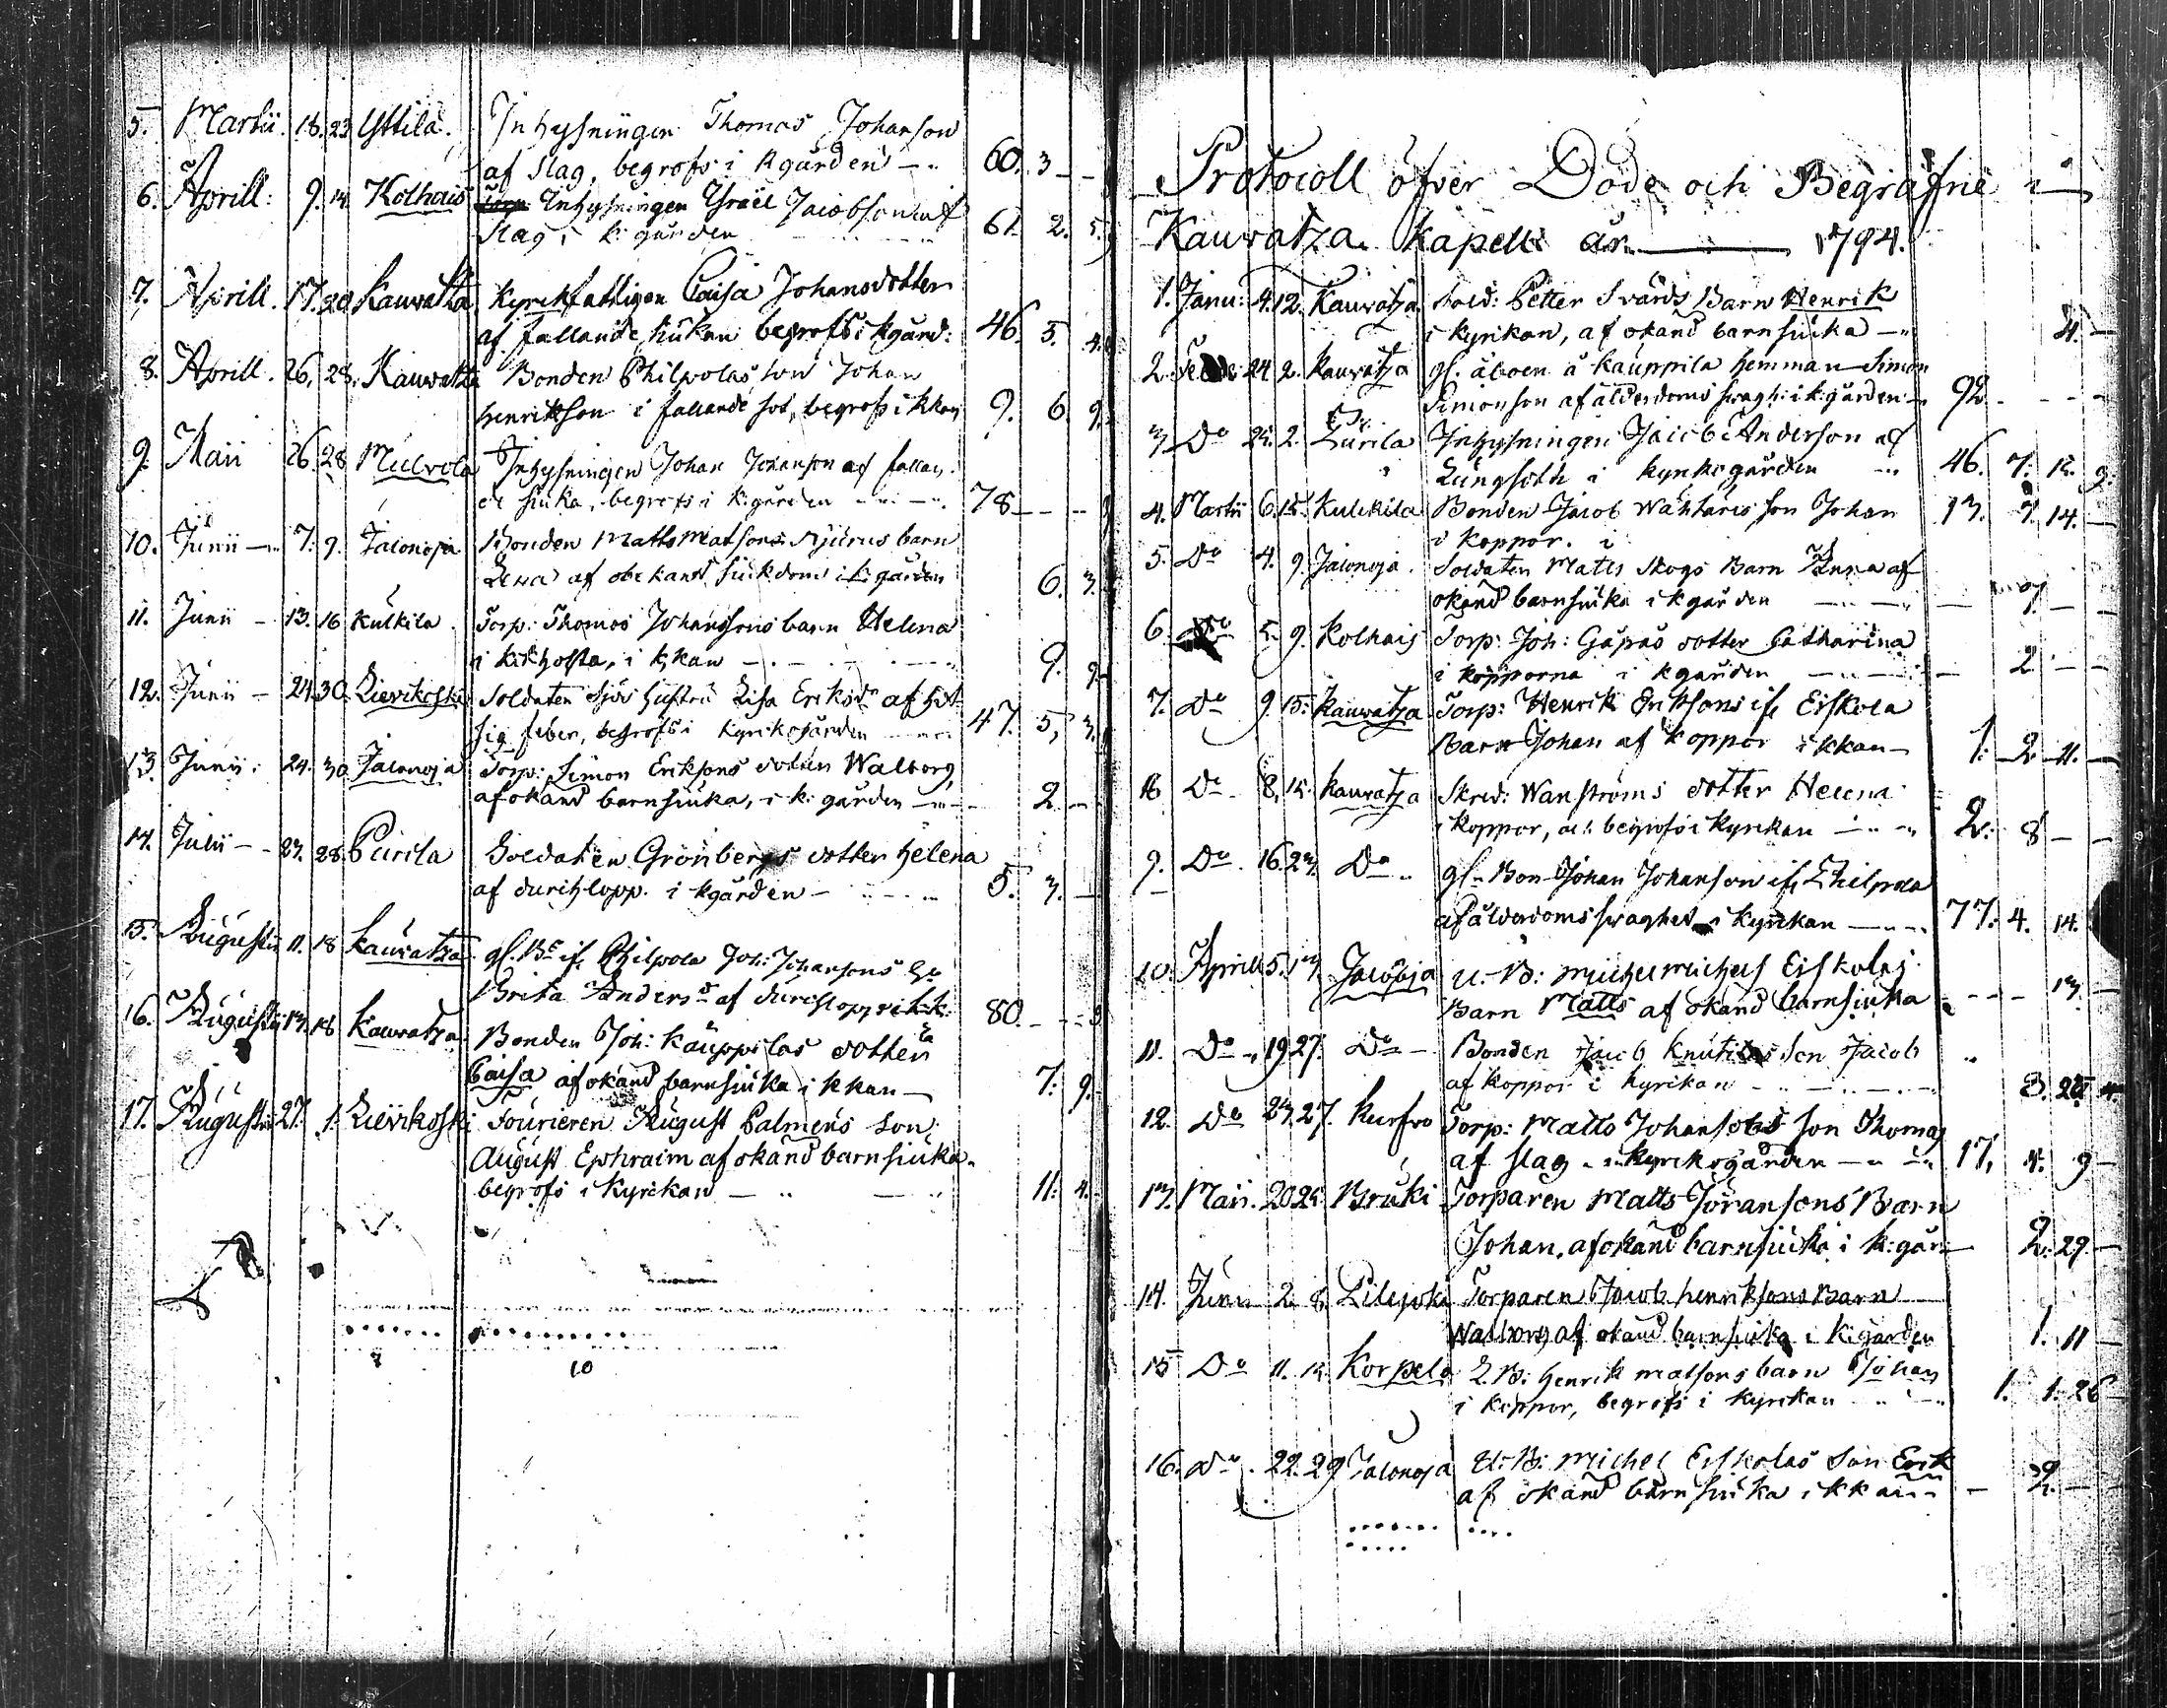 5. Martii. 18. 23 Yttilä. Inhysningen Thomas Johanson
af slag, begrofs i kgården 60. 3
6. Aprill: 9. 14 Kolhais Inhysningen Israel Jacobson af
slag i k: gården 61. 2. 5.
7. Aprill. 17. 20 Kauwatza kyrckfattigen Caisa Johansdotter
af fallande siukan begrofs i kgård: 46. 5. 4.
8. Aprill. 26. 28. Kauwatza Bonden Philpolas son Johan
henrikson i fallande sot, begrofs i kkan 9. 6. 9.
9. Maii 26 28 Inhysningen Johan Johanson af fallan-
de siuka, begrofs i k: gården 78
10. Junii 7. 9. Jalonoja Bonden Matts Matsons barn
Lena af obekand siukdom i k: gården 6. 3.
11. Junii 13. 16 Kulkila. Torp: Thomas Johansons barn Helena
i kikhosta, i kkan 9. 9.
12. Junii 24. 30. Lievikoski Soldaten hustru Lisa Eriksdr af hit-
sig feber, begrofs i kyrkogården 47. 5. 3.
13. Junii. 24. 30 Jalonoja Torp: Simon Eriksons dotter Walborg
af okänd barnsiuka, i k: gården 2.
14. Julii 27. 28 Purila Soldaten Grönbergs dotter helena
af durchlopp. i kgården 5. 3.
15. Augustii 11. 18 Kauvatza gl. Bs if. Philpola Joh: Johansons
Brita Andersd af durchlopp i kk: 80. 3
16. Augustii 13. 18 Kauvatza Bonden Joh: Käuppilas dotter
Caisa af okänd barnsiuka i kkan 7. 9.
17. Augustii 27. 1. Lievikoski Fourieren August Palmens son
August Ephraim af okänd barnsiuka.
begrofs i kyrckan 11. 4.
10
Protocoll öfver Döde och Begrafne i
Kauvatza kapell år 1794.
1. Janu: 4. 12. Kauvatza Sold: Petter Svärds Barn Henrik
i kyrkan, af okänd barnsiuka 4.
2. 24 2. Kauvatza gl. åboen å kauppila hemman Simon
Simonson af ålderdoms swagh: i k: gården 92
3. Do 24. 2. Purila Inhysningen Jacob Anderson af
Lungsoth i kyrkogården 46. 7. 12. 9.
4. Martii 6. 15. Kulckila Bonden Jacob Wähtäris son Johan
i koppor. i 13. 7. 14.
5. Do 4. 9. Jalonoja. Soldaten Matts Skogs Barn Anna af
okänd barnsiuka i kgården 7.
6. Do 5. 9. Kolhais Torp: Joh: Gåpås dotter Catharina
i kopporna i kgården 2
7. Do 9. 15. Kauvatza Torp: Henrik Eriksons if. Eiskola
Barn Johan af koppor i kkan 1. 2. 11.
8 Do 8. 15. Kauvatza Skred: Wanströms dotter Helena
i koppor, och begrofs i kyrckan 2. 8
9. Do 16. 23. Do gl. Bon Johan Johanson if. Philpola
af ålderdoms swaghet i kyrckan 77. 4. 14.
10. Aprill 5. 13. Jalonoja u. B: michel michels Eiskolas
Barn Matts af okänd barnsiuka 13.
11. Do 19. 27. Do Bonden Jacob son Jacob
af koppor i kyrckan 3. 28.
12. Do 24. 27. Torp: Matts Johansons son Thomas
af slag i kyrckogården 17. 4. 9
13. Maii. 20. 25 Bruki Torparen Matts Johansons Barn
Johan, af okänd barnsiuka i k: går: 2. 29.
14. Junii 2. 8. Torparen Jacob henriksons Barn
Walborg af okänd barnsiuka i k: gården 1. 11
15 Do 11. 15. Korpela L. B: henrik matsons barn Johan
i koppor, begrofs i kyrckan 1. 1. 26
16. Do. 22. 29 Jalonoja U. B: michel Eiskolas son Erik
af okänd barnsiuka i kkan 2.